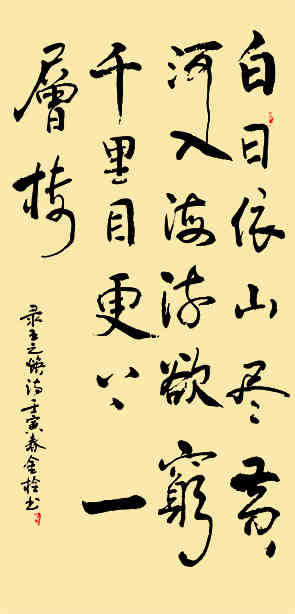 白日依山尽黄
河入海流欲窮
千里目更上一
層楼
录王之焕诗壬寅春金栓书